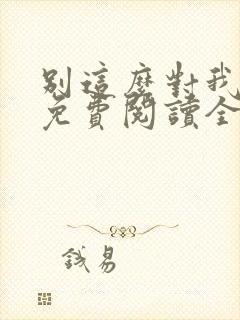 別這麼對我
免費閱讀全
錢易